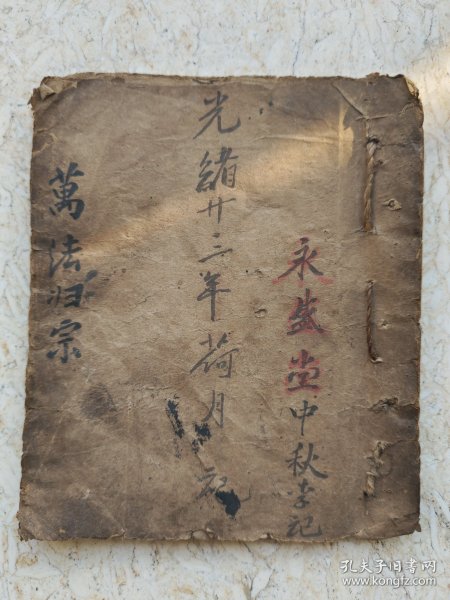 永盛堂中秋李记
光緒廿三年荷月 记
萬法归宗
孔夫子旧书网
www.kongfz.com